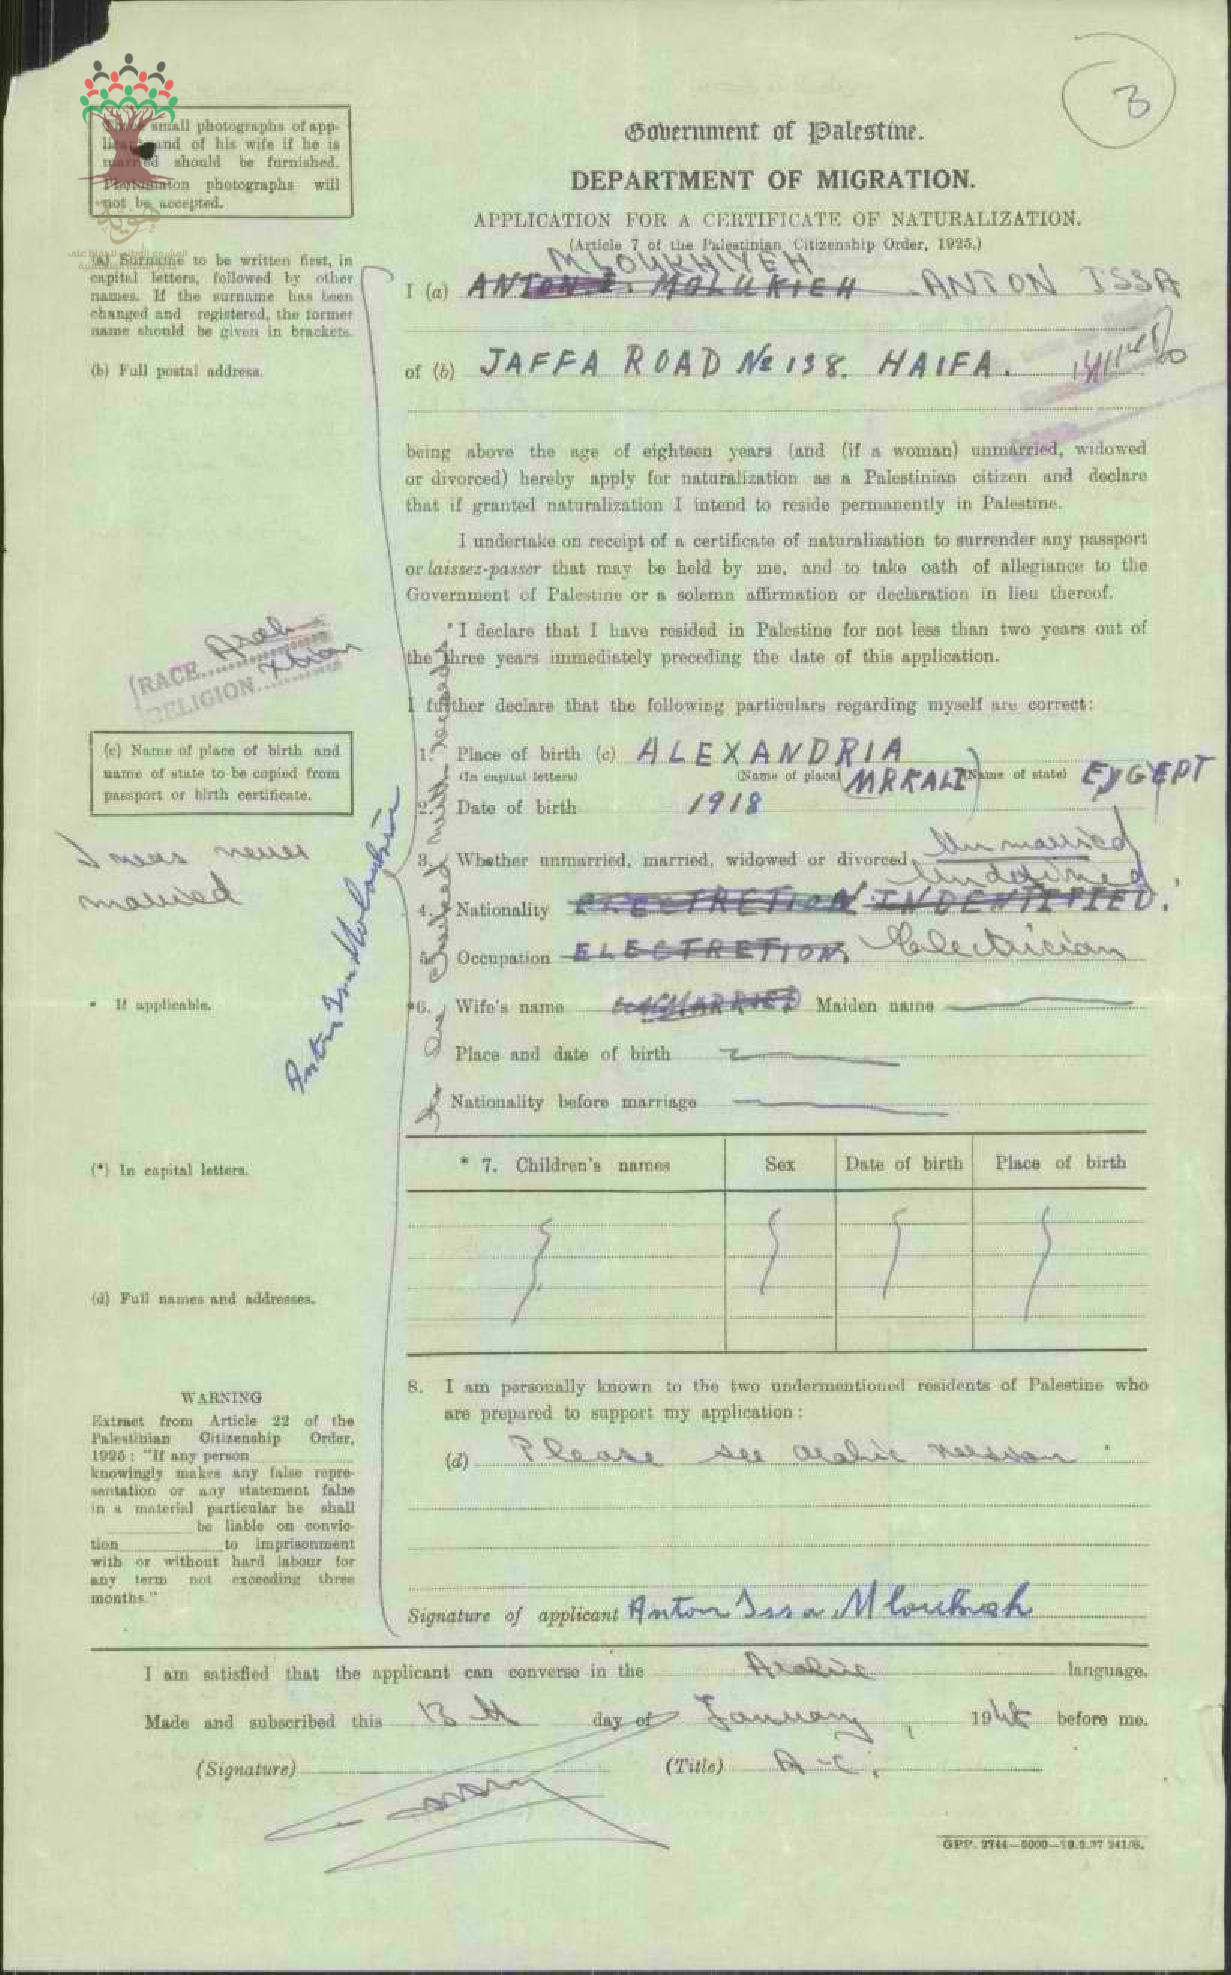 3
Three small photographs of app-
licant and of his wife if he is
married should be furnished.
Photomaton photographs will
not be accepted.
هوية
Government of Palestine.
DEPARTMENT OF MIGRATION.
APPLICATION FOR A CERTIFICATE OF NATURALIZATION.
(Article 7 of the Palestinian Citizenship Order, 1925.)
MLOUKHIYEH
I (a) ANTON I. MOLUKIEH ANTON ISSA
of (b) JAFFA ROAD No 138. HAIFA.
(a) Surname to be written first, in
capital letters, followed by other
names. If the surname has been
changed and registered, the former
name should be given in brackets.
(b) Full postal address.
being above the age of eighteen years (and (if a woman) unmarried, widowed
or divorced) hereby apply for naturalization as a Palestinian citizen and declare
that if granted naturalization I intend to reside permanently in Palestine.
I undertake on receipt of a certificate of naturalization to surrender any passport
or laissez-passer that may be held by me, and to take oath of allegiance to the
Government of Palestine or a solemn affirmation or declaration in lieu thereof.
*I declare that I have resided in Palestine for not less than two years out of
the three years immediately preceding the date of this application.
I further declare that the following particulars regarding myself are correct:
RACE Arab
RELIGION Xtian
(c) Name of place of birth and
name of state to be copied from
passport or birth certificate.
I was never
married
1. Place of birth (c) ALEXANDRIA
(In capital letters) (Name of place) MRKALI (Name of state) EYGEPT
2. Date of birth 1918
3. Whether unmarried, married, widowed or divorced Unmarried
Undefined
4. Nationality ELECTRETION INDENTIFIED.
5. Occupation ELECTRETION Electrician
* If applicable.
*6. Wife's name UNMARRIED Maiden name
Place and date of birth
Nationality before marriage
(*) In capital letters.
* 7. Children's names Sex Date of birth Place of birth
(d) Full names and addresses.
8. I am personally known to the two undermentioned residents of Palestine who
are prepared to support my application:
(d) Please see arabic version
WARNING
Extract from Article 22 of the
Palestinian Citizenship Order,
1925: "If any person
knowingly makes any false repre-
sentation or any statement false
in a material particular he shall
be liable on convic-
tion to imprisonment
with or without hard labour for
any term not exceeding three
months."
Signature of applicant Anton Issa Mloukhieh
I am satisfied that the applicant can converse in the Arabic language.
Made and subscribed this 13th day of January, 1945 before me.
(Signature) (Title) A-C.
GPP. 2744—5000—19.2.37 241/S.